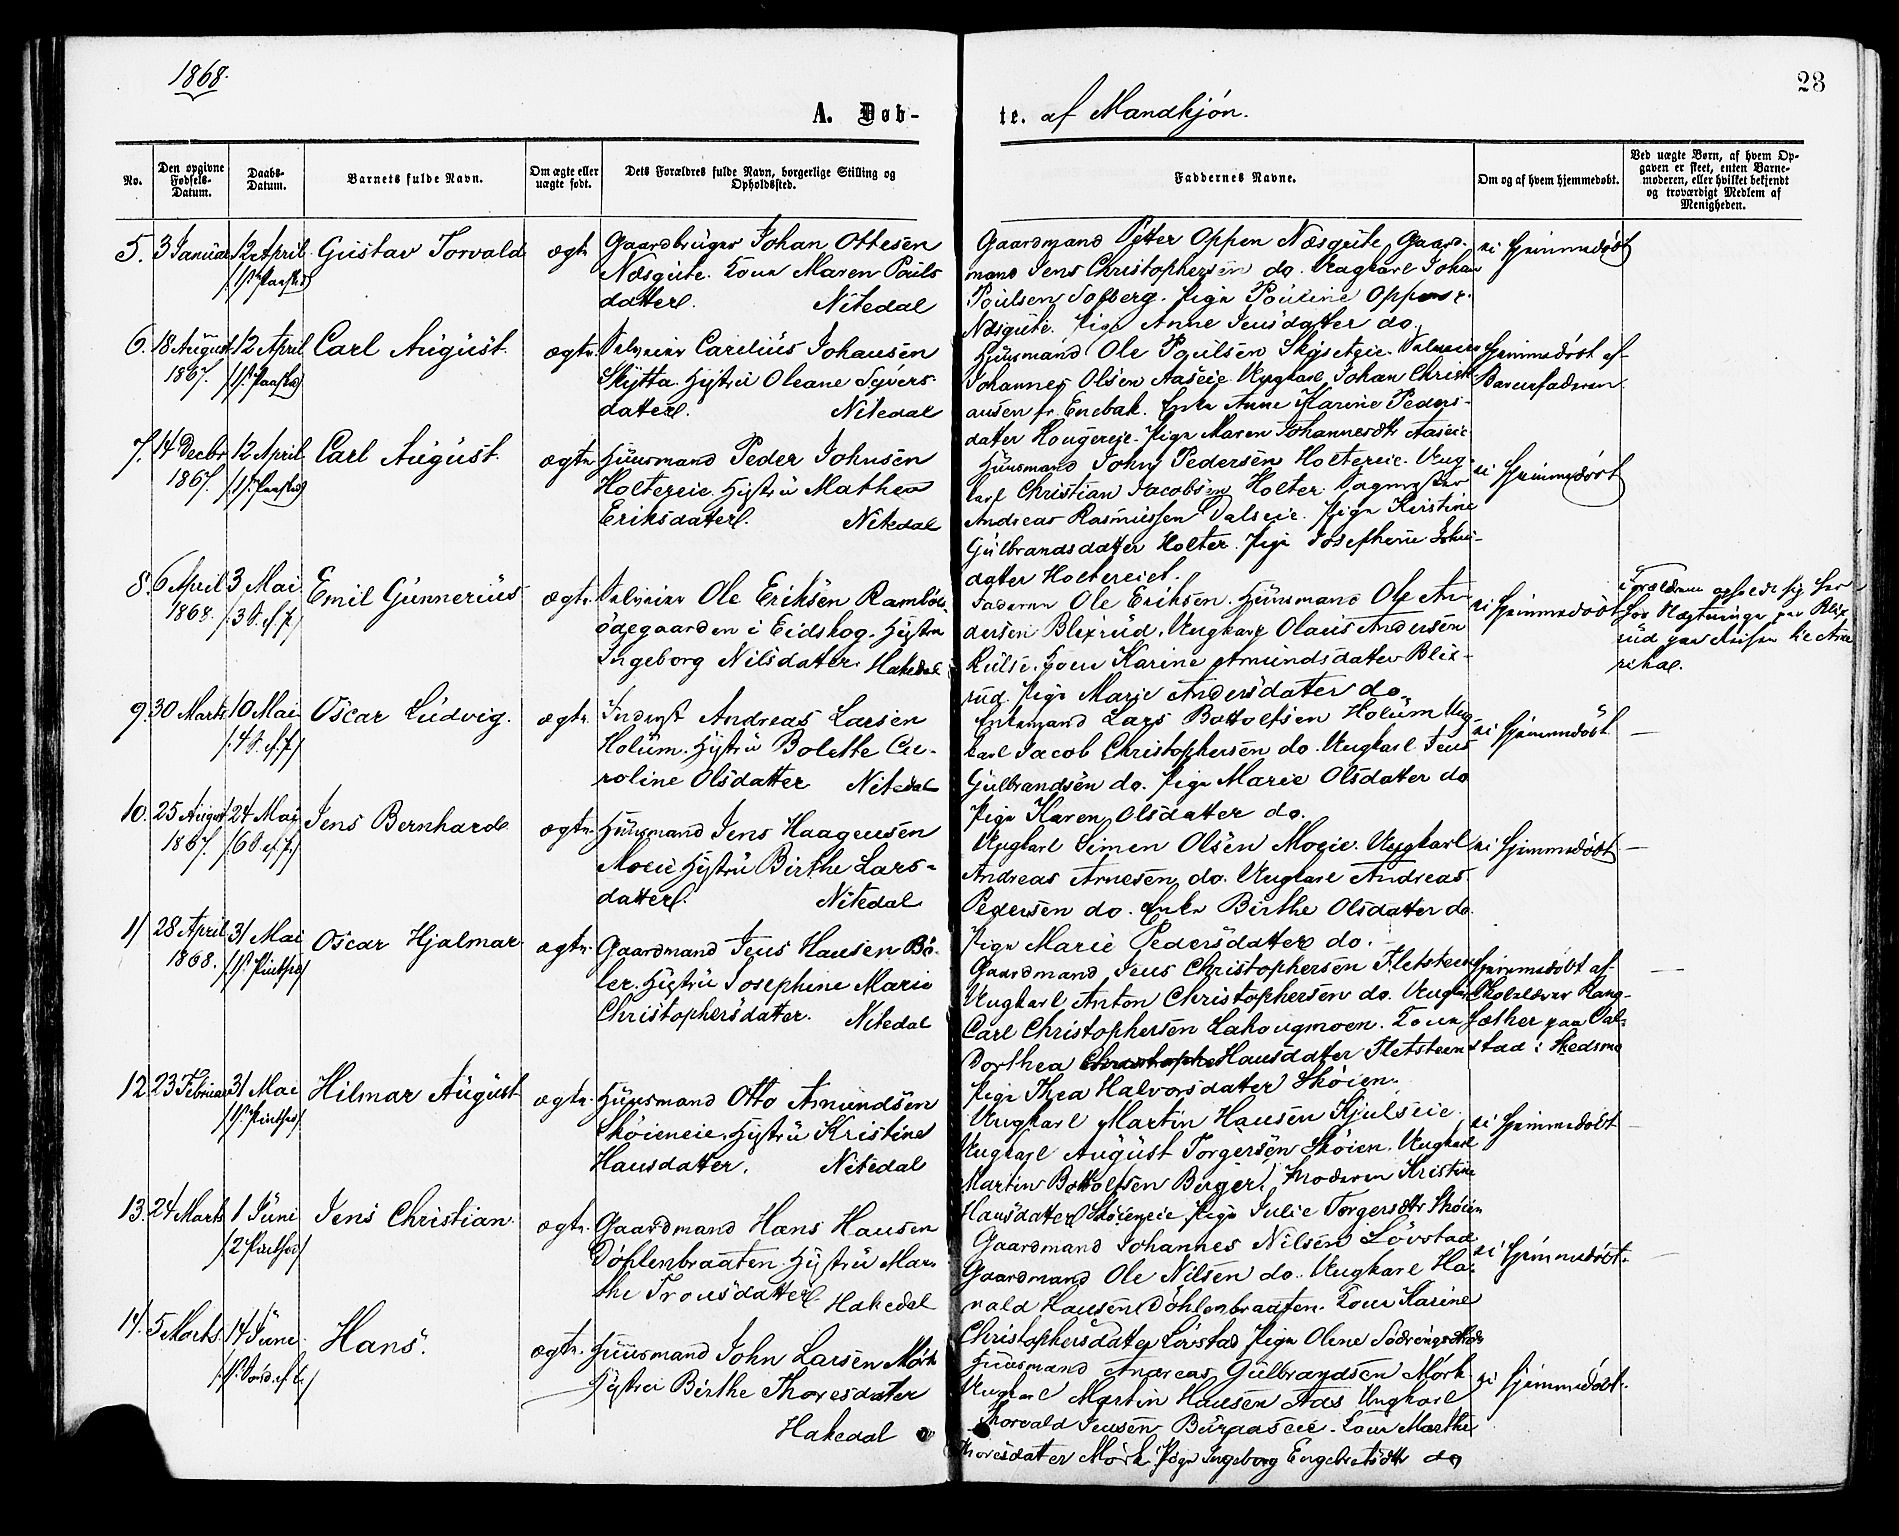 1868.
28
A. Døb-
te. af Mandkjøn.
No.
Den opgivne
Fødsels-
Datum.
Daabs-
Datum.
Barnets fulde Navn.
Om ægte eller
uægte født.
Dets Forældres fulde Navn, borgerlige Stilling og
Opholdssted.
Faddernes Navne.
Om og af hvem hjemmedøbt.
Ved uægte Børn, af hvem Op-
gaven er skeet, enten Barne-
moderen, eller hvilket bekjendt
og troværdigt Medlem af
Menigheden.
5. 3 Januar 12 April Gustav Torvald ægte
Gaardbruger Johan Ottesen
Næsgute. Kone Maren Pouls
datter. Nitedal
Gaardmand Petter Oppen Næsgute, Gaard-
mand Jens Christophersen do. Ungkarl Johan
Poulsen Solberg. Pige Pouline Oppense.
Næsgute. Pige Anne Jensdatter do.
ei hjemmedøbt
6. 18 August 1867. 12 April Carl August ægte
Carelius Johansen
Skytta. Hustru Oleane Syvers-
datter. Nitedal
Huusmand Ole Poulsen
Johannes Olsen Aaseie. Ungkarl Johan Christi-
ansen fr. Enebak. Enke Anne Karine Peders-
datter Hougereie. Pige Maren Johannesdtr Aaseie
hjemmedøbt af
Barnefaderen.
7. 14 Decbr 1867. 12 April Carl August. ægte
Huusmand Peder Johnsen
Holtereie. Hustru Mathea
Eriksdatter. Nitedal
Huusmand John Pedersen Holtereie. Ung-
karl Christian Jacobsen Holter.
Andreas Rasmussen Dalseie. Pige Kirstine
Gulbrandsdatter Holter. Pige Josephine
datter Holtereiet.
ei hjemmedøbt
8. 6 April 1868. 3 Mai /3 S. ef. P./ Emil Gunnerius ægte
Ole Eriksen
ödegaarden i Eidskog. Hustru
Ingeborg Nilsdatter. Hakedal
Faderen Ole Eriksen. Huusmand Ole An-
dersen Blixrud. Ungkarl Olaus Andersen
Kone Karine Amundsdatter Blix-
rud. Pige Marie Andersdatter do.
ei hjemmedøbt
Forældrene opholdt sig her
hos Slægtninge paa Blix
rud paa Reisen til Ame
rika.
9. 30 Marts 10 Mai /4 S. ef. P./ Oscar Ludvig. ægte
Inderst Andreas Larsen
Holum. Hustru Bolette Ca-
roline Olsdatter Nitedal
Enkemand Lars Bottolfsen Holum Ung-
karl Jacob Christophersen do. Ungkarl Jens
Gulbrandsen do. Pige Marie Olsdatter do
Pige Karen Olsdatter do.
ei hjemmedøbt
10. 25 August 1867. 24 Mai /6 S. ef. P./ Jens Bernhard ægte
Huusmand Jens Haagensen
Moeie Hustru Birthe Lars-
datter. Nitedal
Ungkarl Simen Olsen Moeie. Ungkarl
Andreas Arnesen do. Ungkarl Andreas
Pedersen do. Enke Birthe Olsdatter do.
Pige Marie Pedersdatter do.
ei hjemmedøbt
11 28 April 1868. 31 Mai Oscar Hjalmar ægte
Gaardmand Jens Hansen Bö-
ler. Hustru Josephine Marie
Christophersdatter. Nitedal
Gaardmand Jens Christophersen Fletsteen
Ungkarl Anton Christophersen do. Ungkarl
Carl Christophersen Lahougmoen. Kone
Dorthea Hansdatter Fletsteen
Pige Thea Halvorsdatter Skøien.
hjemmedøbt af
Skolelærer Rang-
sæther paa Val-
stad i Skedsmo
12 23 Februar 31 Mai Hilmar August ægte
Huusmand Otto Amundsen
Skøieneie. Hustru Kristine
Hansdatter. Nitedal
Ungkarl Martin Hansen Kjulseie.
Ungkarl August Torgersen Skøien. Ungkarl
Martin Bottolfsen Berger. Moderen Kristine
Hansdatter Skøieneie. Pige Julie Torgersdtr Skøien
ei hjemmedøbt
13. 24 Marts 1 Juni Jens Christian. ægte
Gaardmand Hans Hansen
Döhlenbraaten. Hustru Mar-
the Tronsdatter. Hakedal
Gaardmand Johannes Nilsen Lövstad
Gaardmand Ole Nilsen do. Ungkarl Ha-
rald Hansen Döhlenbraaten. Kone Karine
Christophersdatter Lövstad Pige Olene
ei hjemmedøbt.
14. 5 Marts. 14 Juni Hans. ægte.
Huusmand John Larsen Mörk
Hustru Birthe Thoresdatter
Hakedal
Huusmand Andreas Gulbrandsen Mörk
Ungkarl Martin Hansen Aas Ungkarl
Thorvald Jensen Buraaseie. Kone Marthe
Thoresdatter Mörk. Pige Ingeborg Engebretsdtr do
ei hjemmedøbt.